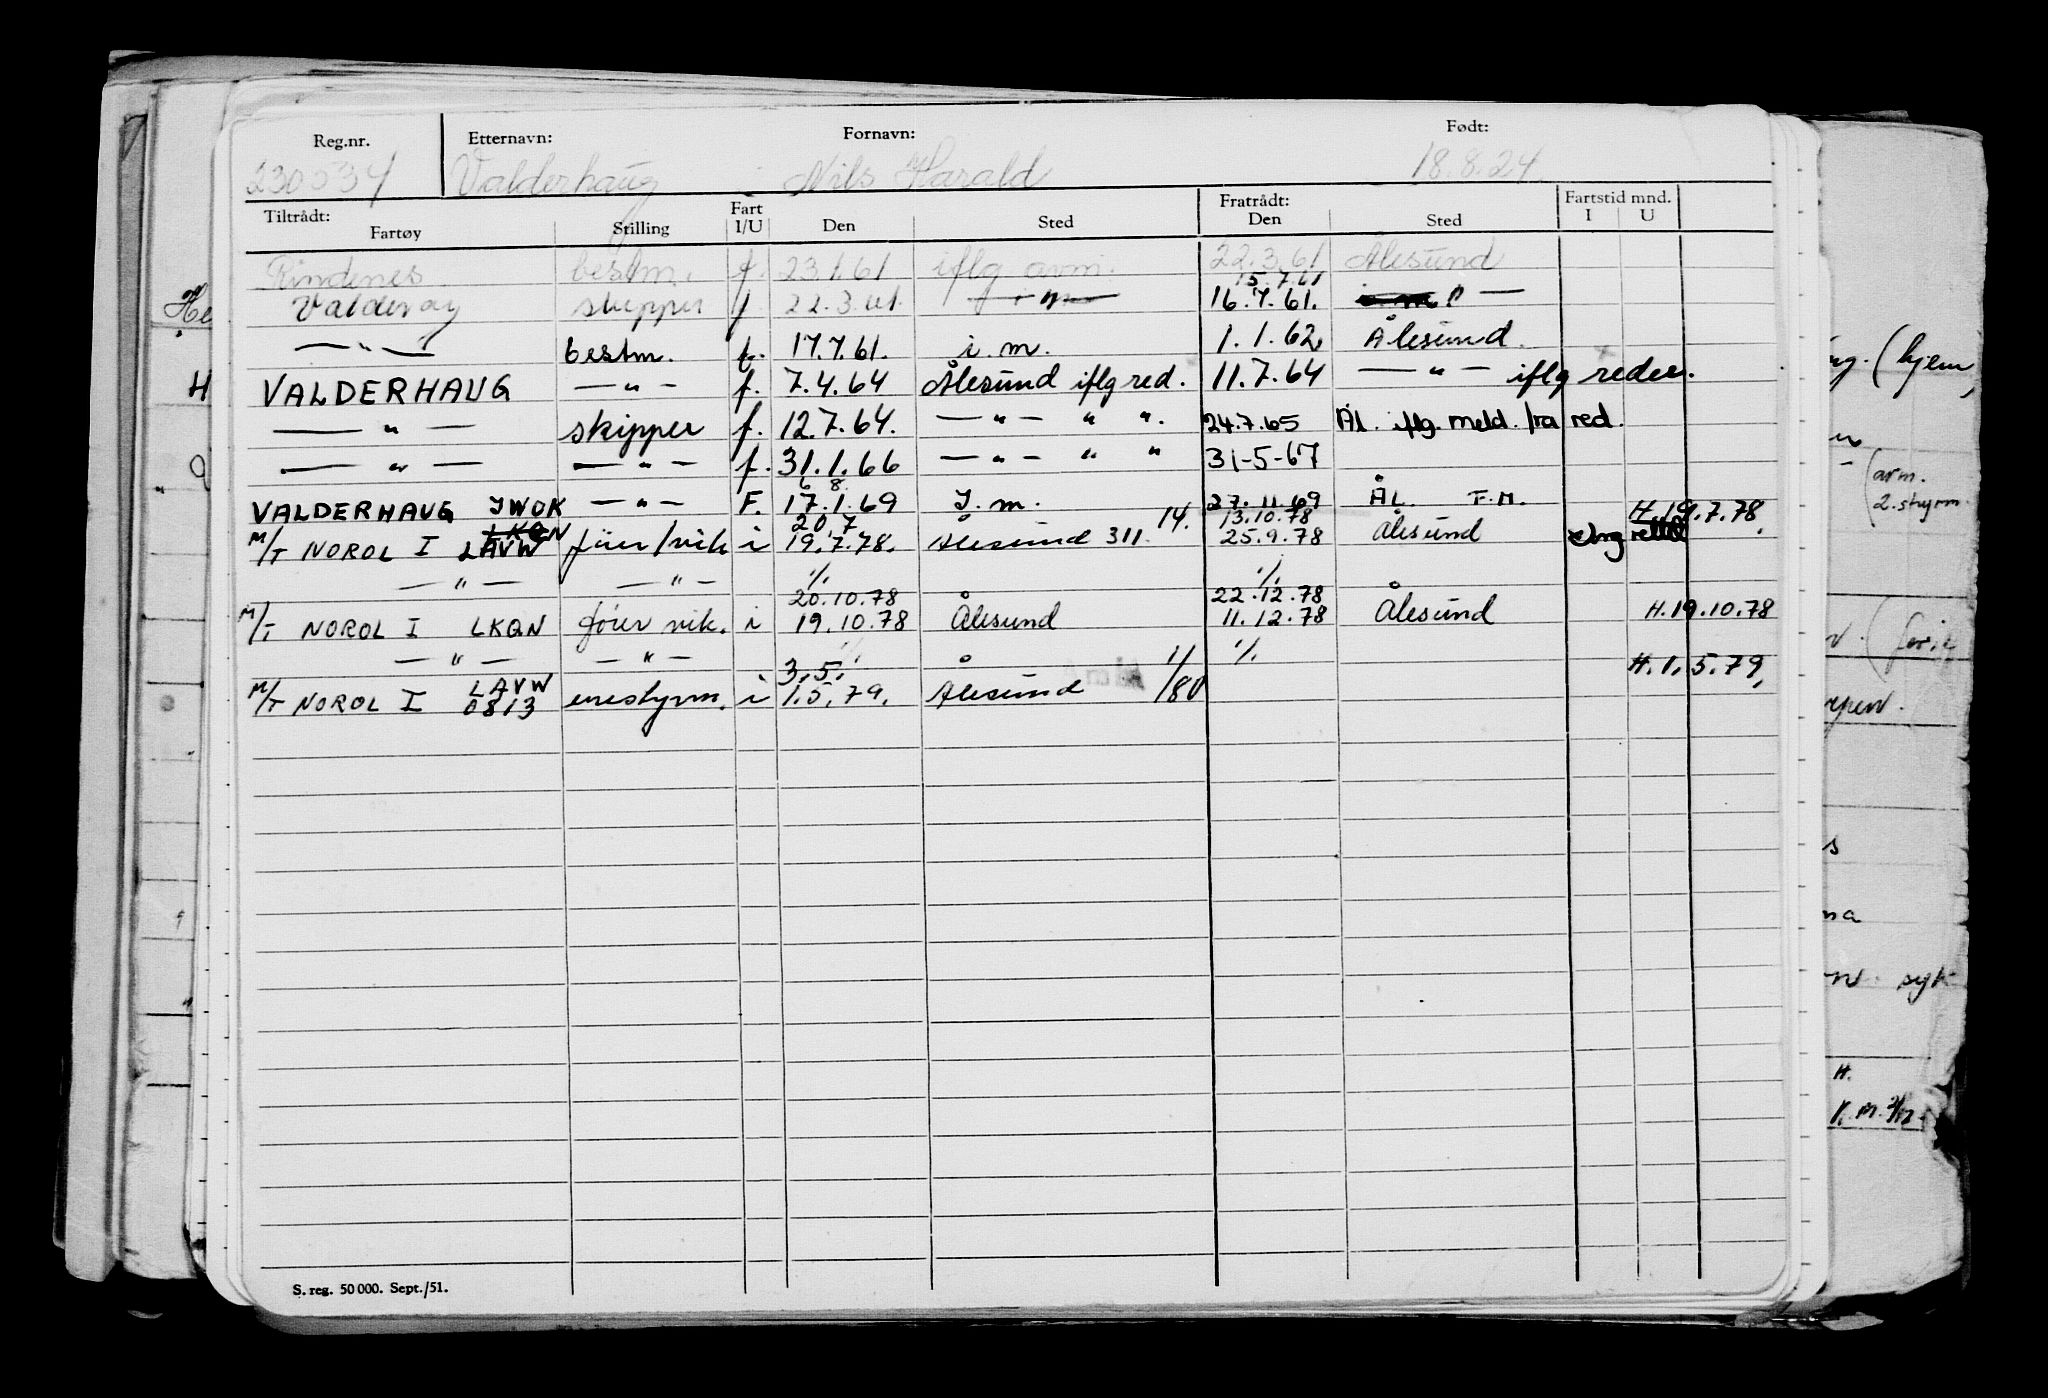 Reg.nr. Etternavn: Fornavn: Født:
230534 Valderhaug Nils Harald 18.8.24.
Tiltrådt: Fratrådt: Fartstid mnd.
Fartøy Stilling Fart I/U Den Sted Den Sted I U
Rindenes bestm. f. 23.1.61 iflg avm. 22.3.61 Ålesund
15.7.61
Valderøy skipper f. 22.3.61. 16.7.61. — " —
— " — bestm. f. 17.7.61. i. m. 1.1.62. Ålesund.
VALDERHAUG — " — f. 7.4.64 Ålesund iflg red. 11.7.64 — " — iflg reder.
— " — skipper f. 12.7.64. — " — " ". 24.7.65 Ål. iflg. meld. fra red.
— " — — " — f. 31.1.66 — " — " " 31-5-67
6 8.
VALDERHAUG JWOK — " — F. 17.1.69 I.m. 27.11.69 ÅL. F.M.
LKQN 20 7 14. 13.10.78 H.19.7.78.
M/T NOROL I LAVW fører/vik i 19.7.78. Ålesund 311. 25.9.78 Ålesund
— " — — " — 1/1 1/1
20.10.78 22.12.78
M/T NOROL I LKQN fører vik. i 19.10.78 Ålesund 11.12.78 Ålesund H.19.10.78
— " — — " — 1/1
LAVW 3.5. 1/ H.1.5.79.
M/T NOROL I 0813 enestyrm. i 1.5.79. Ålesund /80
S. reg. 50 000. Sept./51.
He
H
(hjem,
(arm.
2. styrm.
s
na
syk
H.